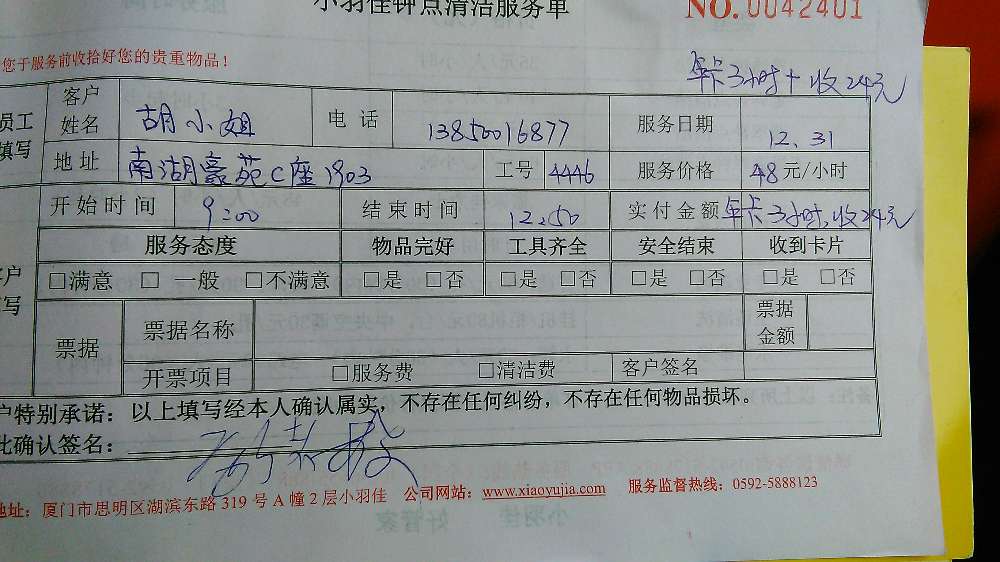 小羽佳钟点清洁服务单 NO. 0042401
您于服务前收拾好您的贵重物品！
年卡3小时+收24元
员工填写 客户姓名 胡小姐 电话 13850016877 服务日期 12.31
地址 南湖豪苑C座1903 工号 4446 服务价格 48元/小时
开始时间 9:00 结束时间 12.50 实付金额 年卡3小时,收24元
服务态度 物品完好 工具齐全 安全结束 收到卡片
□满意 □一般 □不满意 □是 □否 □是 □否 □是 □否 □是 □否
票据 票据名称 票据金额
开票项目 □服务费 □清洁费 客户签名
户特别承诺：以上填写经本人确认属实，不存在任何纠纷，不存在任何物品损坏。
此确认签名：
地址：厦门市思明区湖滨东路319号A幢2层小羽佳 公司网站：www.xiaoyujia.com 服务监督热线：0592-5888123